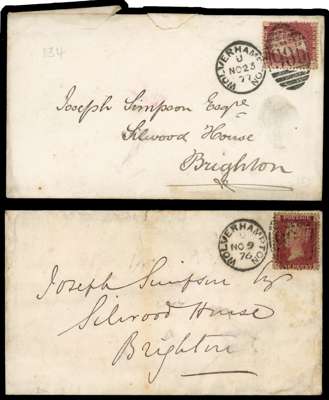 134
WOLVERHAMPTON
U
NO 23
77
905
Joseph Simpson Esqre
Silwood House
Brighton
WOLVERHAMPTON
NO 9
76
POSTAGE
Joseph Simpson Esq
Silwood House
Brighton